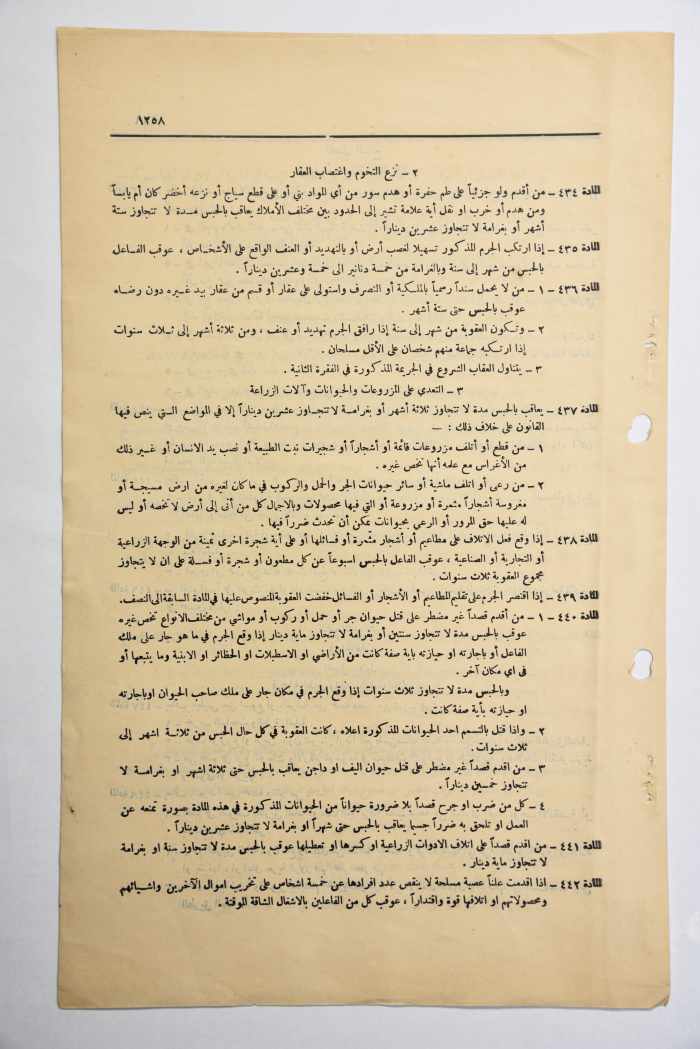 ١٢٥٨
٢ - نزع التخوم واغتصاب العقار
المادة ٤٣٤ - من أقدم ولو جزئياً على طم حفرة أو هدم سور من أي المواد بني أو على قطع سياج أو نزعه أخضر كان أم يابساً
ومن هدم أو خرب او نقل أية علامة تشير إلى الحدود بين مختلف الأملاك يعاقب بالحبس مدة لا تتجاوز ستة
أشهر أو بغرامة لا تتجاوز عشرين ديناراً .
المادة ٤٣٥ - إذا ارتكب الجرم المذكور تسهيلا لغصب أرض أو بالتهديد أو العنف الواقع على الأشخاص ، عوقب الفاعل
بالحبس من شهر إلى سنة وبالغرامة من خمسة دنانير الى خمسة وعشرين ديناراً .
المادة ٤٣٦ - ١ - من لا يحمل سنداً رسمياً بالملكية أو التصرف واستولى على عقار أو قسم من عقار بيد غيره دون رضاه
عوقب بالحبس حتى ستة أشهر .
٢ - وتكون العقوبة من شهر إلى سنة إذا رافق الجرم تهديد أو عنف ، ومن ثلاثة أشهر إلى ثلاث سنوات
إذا ارتكبه جماعة منهم شخصان على الأقل مسلحان .
٣ - يتناول العقاب الشروع في الجريمة المذكورة في الفقرة الثانية .
٣ - التعدي على المزروعات والحيوانات وآلات الزراعة
المادة ٤٣٧ - يعاقب بالحبس مدة لا تتجاوز ثلاثة أشهر أو بغرامة لا تتجاوز عشرين ديناراً إلا في المواضع التي ينص فيها
القانون على خلاف ذلك : -
١ - من قطع أو أتلف مزروعات قائمة أو أشجاراً أو شجيرات نبت الطبيعة أو نصب يد الانسان أو غير ذلك
من الأغراس مع علمه أنها تخص غيره .
٢ - من رعى أو اتلف ماشية أو سائر حيوانات الجر والحمل والركوب في ما كان لغيره من ارض مسيجة أو
مغروسة أشجاراً مثمرة أو مزروعة أو التي فيها محصولات وبالاجمال كل من أتى إلى أرض لا تخصه أو ليس
له عليها حق المرور أو الرعي بحيوانات يمكن أن تحدث ضرراً فيها .
المادة ٤٣٨ - إذا وقع فعل الاتلاف على مطاعيم أو أشجار مثمرة أو فسائلها أو على أية شجرة اخرى ثمينة من الوجهة الزراعية
أو التجارية أو الصناعية ، عوقب الفاعل بالحبس اسبوعاً عن كل مطعون أو شجرة أو فسلة على ان لا يتجاوز
مجموع العقوبة ثلاث سنوات .
المادة ٤٣٩ - إذا اقتصر الجرم على تقليم المطاعيم أو الأشجار أو الفسائل خفضت العقوبة المنصوص عليها في المادة السابقة الى النصف .
المادة ٤٤٠ - ١ - من أقدم قصداً غير مضطر على قتل حيوان جر أو حمل أو ركوب أو مواشي من مختلف الانواع تخص غيره
عوقب بالحبس مدة لا تتجاوز سنتين أو بغرامة لا تتجاوز ماية دينار إذا وقع الجرم في ما هو جار على ملك
الفاعل أو باجارته او حيازته باية صفة كانت من الأراضي او الاسطبلات او الحظائر او الابنية وما يتبعها أو
فى اي مكان آخر .
وبالحبس مدة لا تتجاوز ثلاث سنوات إذا وقع الجرم في مكان جار على ملك صاحب الحيوان او باجارته
او حيازته بأية صفة كانت .
٢ - واذا قتل بالتسمم احد الحيوانات المذكورة اعلاه ، كانت العقوبة في كل حال الحبس من ثلاثة اشهر إلى
ثلاث سنوات .
٣ - من اقدم قصداً غير مضطر على قتل حيوان اليف او داجن يعاقب بالحبس حتى ثلاثة اشهر او بغرامة لا
تتجاوز خمسين ديناراً .
٤ - كل من ضرب او جرح قصداً بلا ضرورة حيواناً من الحيوانات المذكورة في هذه المادة بصورة تمنعه عن
العمل او تلحق به ضرراً جسيا يعاقب بالحبس حتى شهراً او بغرامة لا تتجاوز عشرين ديناراً .
المادة ٤٤١ - من اقدم قصداً على اتلاف الادوات الزراعية او كسرها او تعطيلها عوقب بالحبس مدة لا تتجاوز سنة او بغرامة
لا تتجاوز ماية دينار .
المادة ٤٤٢ - اذا اقدمت علناً عصبة مسلحة لا ينقص عدد افرادها عن خمسة اشخاص على تخريب اموال الآخرين واشيائهم
ومحصولاتهم او اتلافها قوة واقتداراً ، عوقب كل من الفاعلين بالاشغال الشاقة المؤقتة .